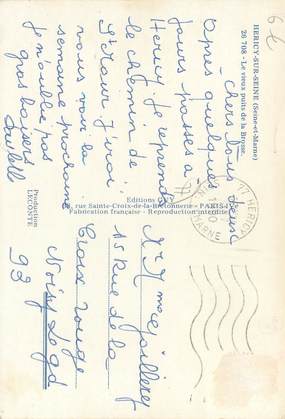 HERICY-SUR-SEINE (Seine-et-Marne)
20 708 - Le vieux puits de la Brosse.
Chers tous deux
Après quelques
jours passés à
Hericy je reprends
le chemin de
St Maur. J'irai
vous voir la
semaine prochaine
je n'oublie pas
gros baisers
Production
LECONTE
Editions GUY
rue Sainte-Croix-de-la-Bretonnerie - PARIS-IVe
Fabrication française - Reproduction interdite
77 HERICY
MARNE
Mr Mme Jaillerey
15 Rue de la
Croix Rouge
Noisy Le Gd
93